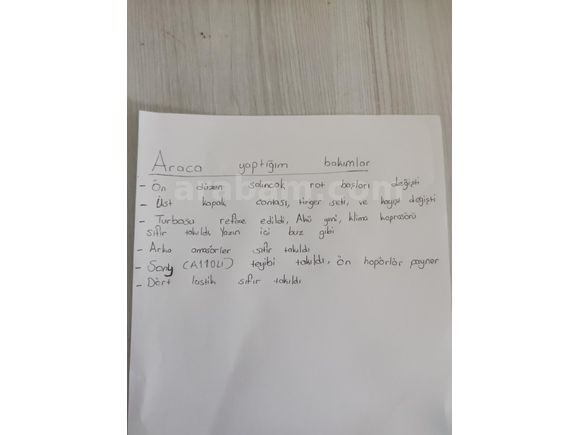 Araca yaptığım bakımlar
- Ön düzen salıncak rot başları değişti
- Üst kapak contası, tirger seti, ve kayışı değişti
- Turbosu refize edildi, Akü yeni, klima koprasörü
sıfır takıldı Yazın içi buz gibi
- Arka amasörler sıfır takıldı
- Sony (A110U) teybi takıldı, ön hoporlör payner
- Dört lastik sıfır takıldı
arabam.com